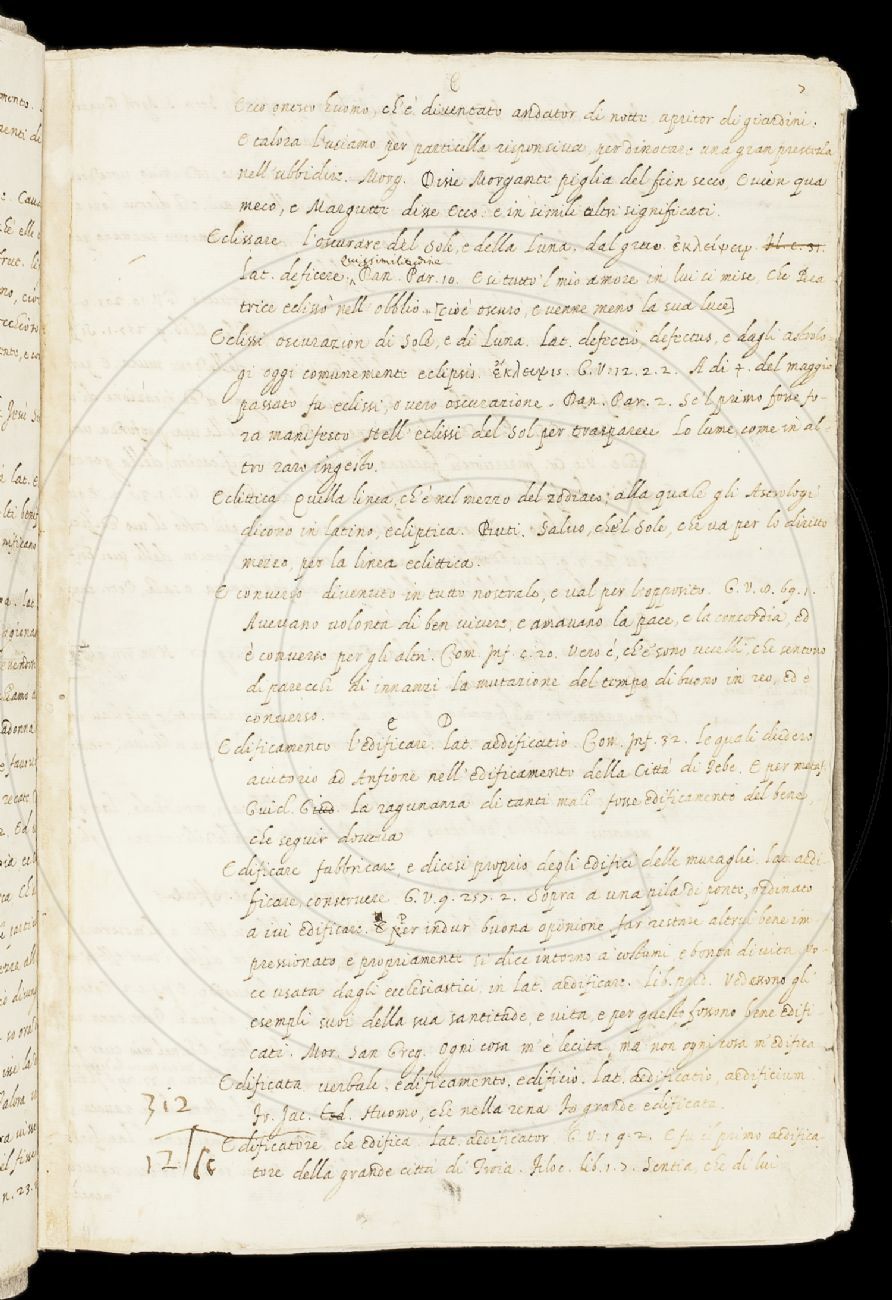 E
Ecco onesto huomo, ch'è diventato andator di notte, apritor di giardini.
E talora l'usiamo per particella responsiva, per dinotare una gran prestezza
nell'ubbidire. Morg. Disse Morgante piglia del fien secco, e vien qua
meco, e Margutte disse Ecco. e in simili altri significati.
Eclissare l'oscurare del Sole, e della Luna. dal greco ἐκλείψειν.
Lat. deficere. Dan. Par. 10. E sì tutto 'l mio amore in lui si mise, che Bea
trice eclissò nell'obblio. [cioè oscurò, e venne meno la sua luce]
Eclissi oscurazion di Sole, e di Luna. Lat. defectio, defectus, e dagli astrolo-
gi oggi comunemente eclipsis. ἔκλειψις. G. V. 12. 2. 2. A dì 7. del maggio
passato fu eclissi, o vero oscurazione. Dan. Par. 2. Se 'l primo fosse fo-
ra manifesto Nell'eclissi del Sol per trasparere Lo lume, come in al-
tro raro ingesto.
Eclittica Quella linea, ch'è nel mezzo del zodiaco: alla quale gli Astrologi
dicono in latino, ecliptica. Buti. Salvo, che 'l Sole, che va per lo diritto
mezzo, per la linea eclittica.
E converso divenuto in tutto nostrale, e val per l'opposito. G. V. 10. 69. 1.
Avevano volontà di ben vivere, e amavano la pace, e la concordia, ed
è converso per gli altri. Com. Inf. c. 20. Vero è, ch'e' sono uccelli, che sentono
di parecchi dì innanzi la mutazione del tempo, di buono in reo, ed è
converso.
e D
Edificamento l'edificare. Lat. aedificatio. Com. Inf. 32. Le quali diedero
aiutorio ad Anfione nell'edificamento della Città di Tebe. E per metaf.
Guid. G. La ragunanza di tanti mali fosse edificamento del bene,
che seguir dovea
Edificare fabbricare, e dicesi proprio degli edifici delle muraglie. Lat. aedi-
ficare, construere. G. V. 9. 257. 2. Sopra a una pila di ponte, ordinato
a ivi edificare. Per indur buona openione, far restare altrui bene im
pressionato, e propriamente si dice intorno a' costumi, e bontà di vita. Vo-
ce usata dagli ecclesiastici, in Lat. aedificare. Vedessono gli
esempli suoi della sua santitade, e vita, e per questo fossono bene edifi-
cati. Mor. San Greg. Ogni cosa m'è lecita, ma non ogni cosa m'edifica
Edificata verbale. edificamento. edificio. Lat. aedificatio, aedificium
Fr. Jac. Huomo, che nella rena Fa grande edificata.
312
Edificatore, che edifica. Lat. aedificator G. V. 1. 9. 2. E fu il primo aedifica-
12
tore della grande città di Troia. Filoc. lib. 1. 7. Sentia, che di lui